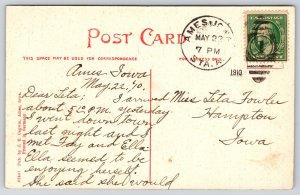 POST CARD
THIS SPACE MAY BE USED FOR CORRESPONDENCE
AMES, IOWA
MAY 22
7 PM
STA.
1910
Ames Iowa
May 22, 10.
Dear Leta: I arrived
about 5 P.M. yesterday
I went down town
last night and I
met Fay and Ella
Ella seemed to be
enjoying herself.
She said she would
Miss Leta Fowler
Hampton
Iowa